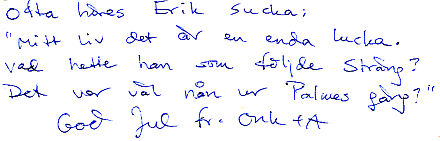 Ofta höres Erik sucka:
"Mitt liv det är en enda lucka.
Vad hette han som följde Sträng?
Det var väl nån ur Palmes gäng?"
God Jul fr. Onk + A